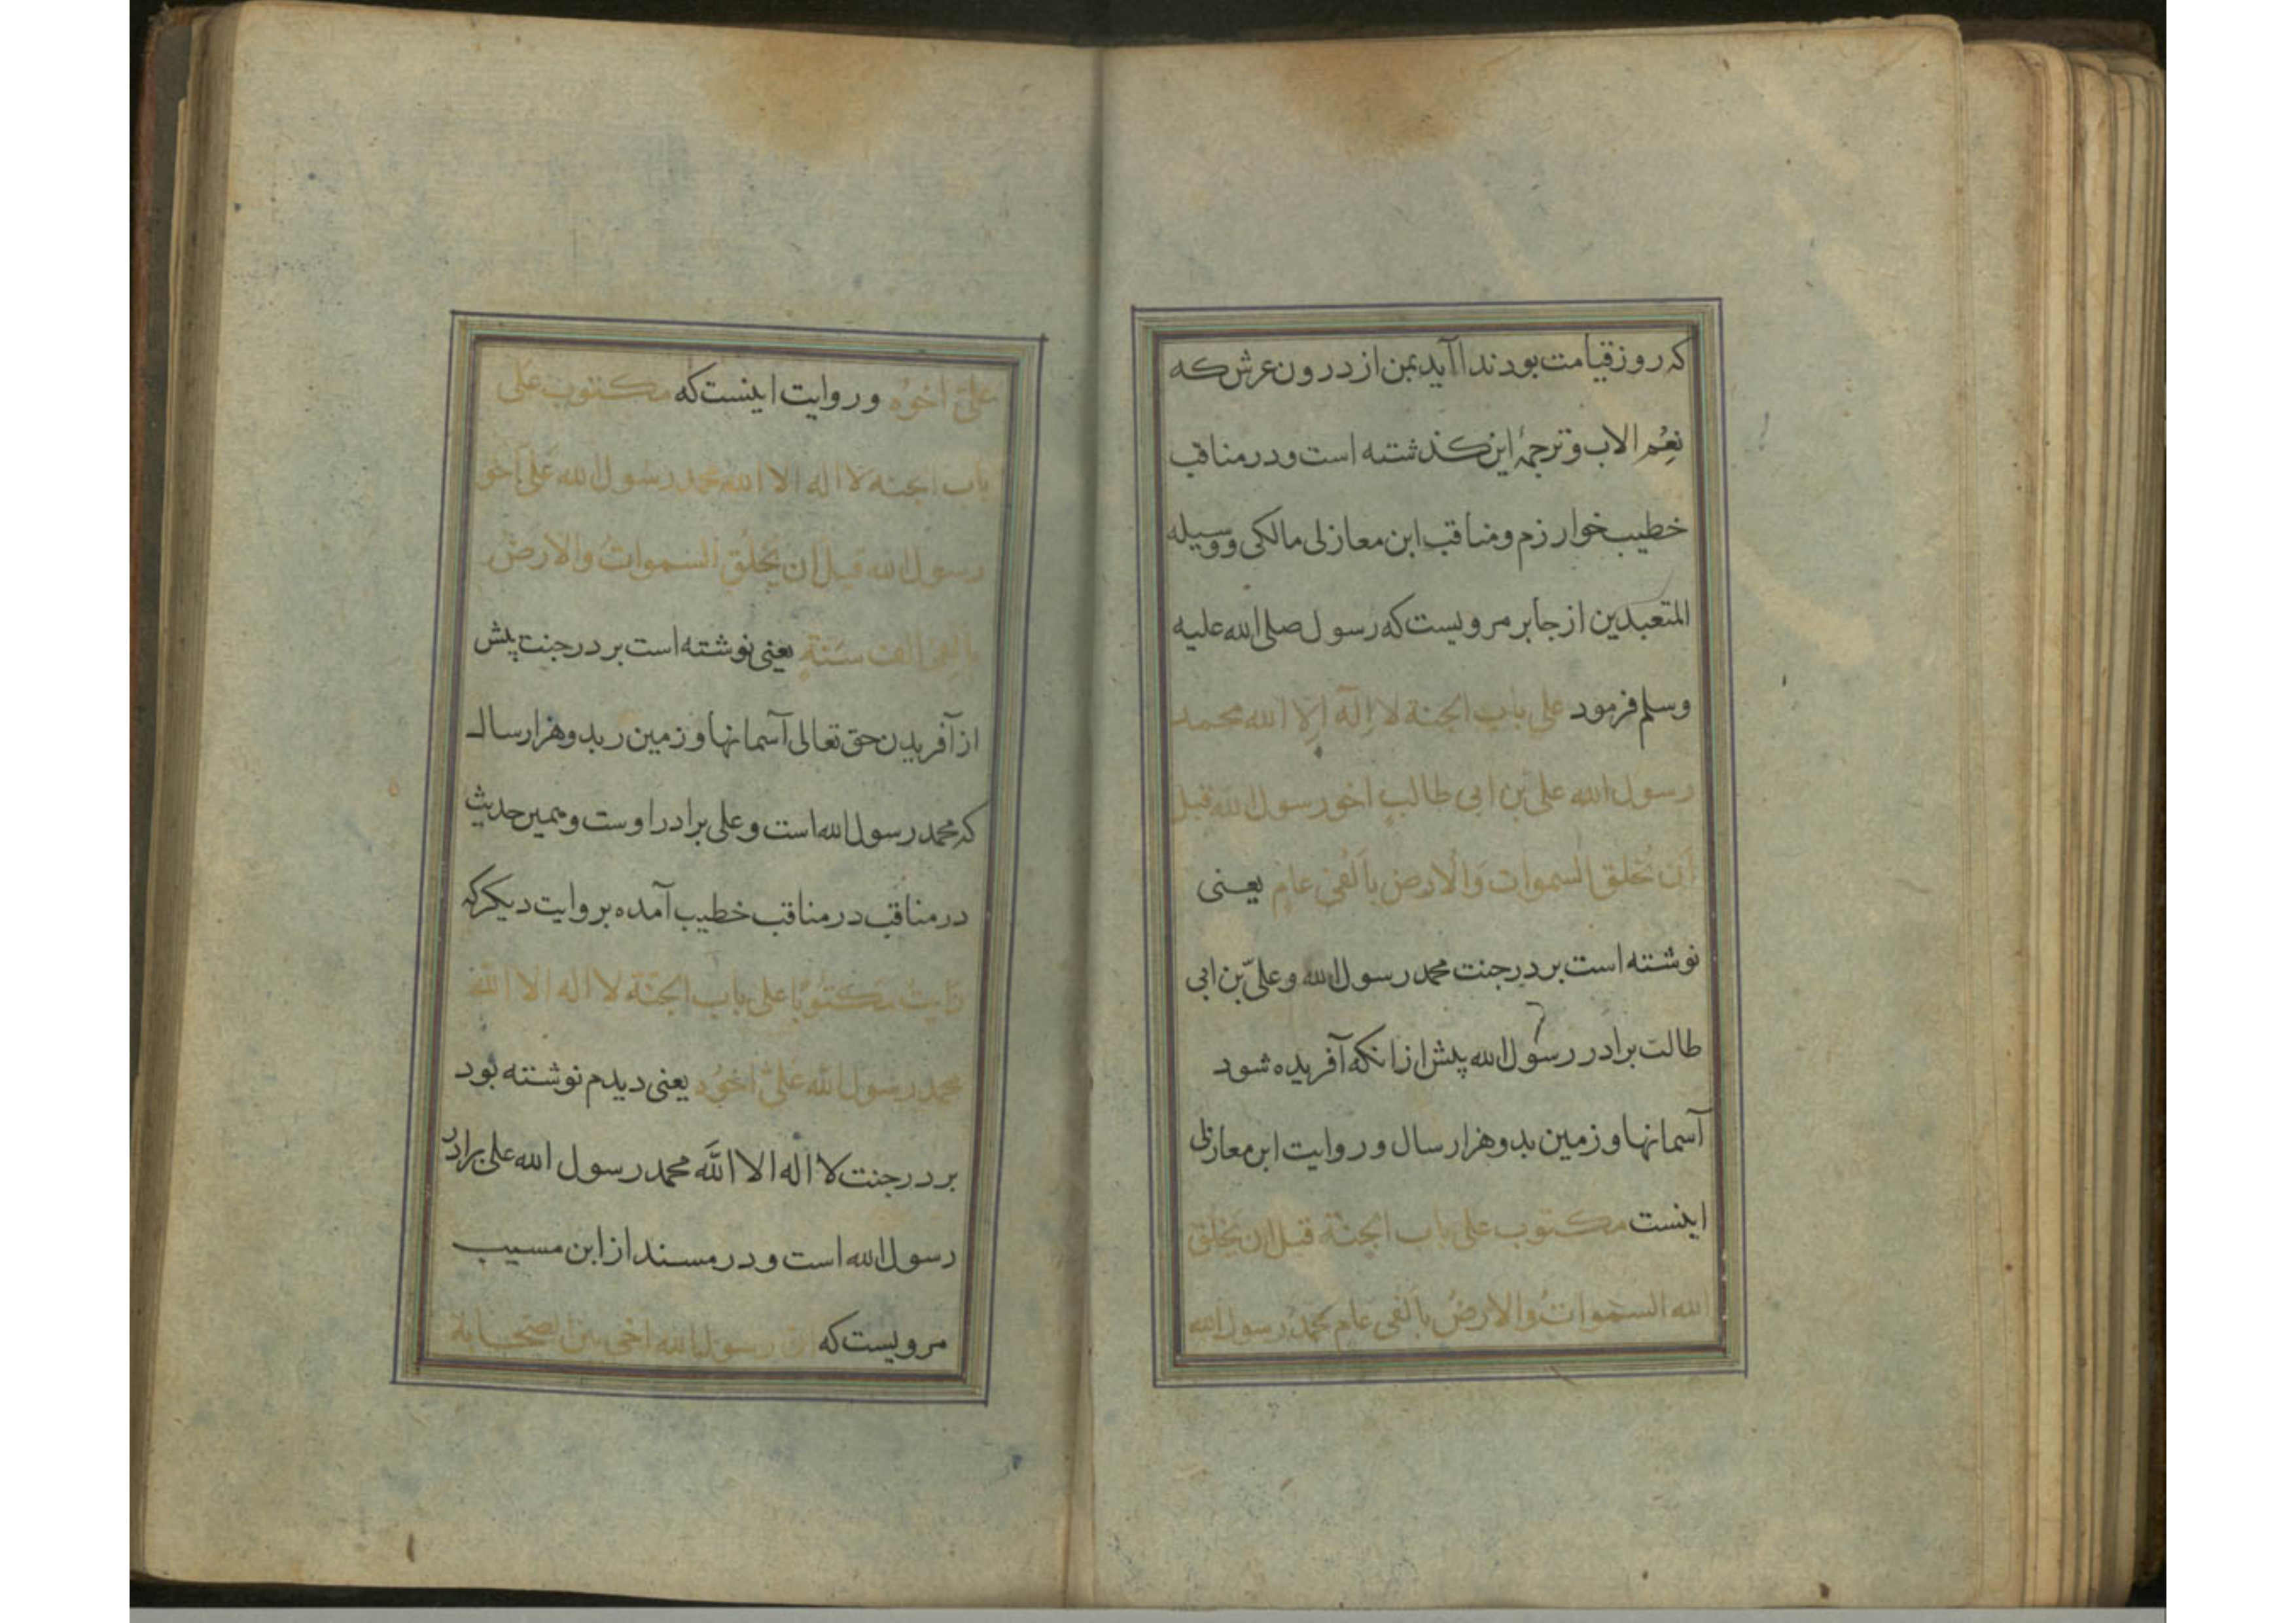 که روز قیامت بود ندا آید بمن از درون عرش که
نِعْمَ الاب و ترجمهٔ این کذشته است و در مناقب
خطیب خوارزم و مناقب ابن معازلی مالکی و وسیله
المتعبدین از جابر مرویست که رسول صلی الله علیه
وسلم فرمود علی باب الجنة لا اِلٓه اِلا الله محمد
رسول الله علی بن ابی طالبٍ اخو رسول الله قبل
اَن تُخلق السموات وَالْارض باَلْفَی عامٍ یعنی
نوشته است بر در جنت محمد رسول الله و علیّ بن ابی
طالت برادر رسول الله پیش ازانکه آفریده شود
آسمانها و زمین بدو هزار سال و روایت ابن معازلی
اینست مکتوب علی باب الجنّة قبل ان یَخْلُق
الله السمٰواتُ والارضُ باَلفی عام محمّدُ رسول الله
علیّ اخوُه و روایت اینست که مکتوب عَلی
باب الجنه لا اله الا الله محمد رسول الله عَلی اَخو
رسول الله قبل ان یَخلُق السموات والارضَ
بالفی الف سَنَةٍ یعنی نوشته است بر در جنت پیش
از آفریدن حق تعالی آسمانها و زمین ربدو هزار سال
که محمد رسول الله است و علی برادر اوست و همین حدیث
در مناقب در مناقب خطیب آمده بروایت دیکر که
رَایتُ مکتوُبًا علی باب الجنّة لا اله الا الله
محمد رسول الله علیّ اخوُه یعنی دیدم نوشته بود
بر در جنت لا اله الا اللّه محمد رسول الله علی برادر
رسول الله است و در مسند از ابن مسیب
مرویست که ان رسول الله اخی بین الصحابة